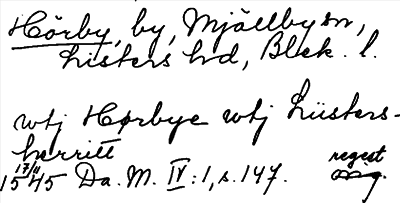 Hörby, by, Mjällby sn,
Listers hd, Blek. l.
wtj Hørbye wtj Lüsters-
herritt
17/11 1545 Da. M. IV:1, s. 147. regest